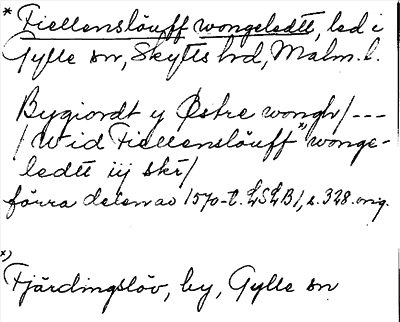 * Fiellenslöuff wongeledtt, led i
Gylle sn, Skytts hd, Malm. l.
Bygiordt y Østre wongh/---
/Wid Fiellenslöuff *) wonge-
ledtt iij skr/
förra delen av 1570-t. LSLB1, s. 328. orig.
*)
Fjärdingslöv, by, Gylle sn